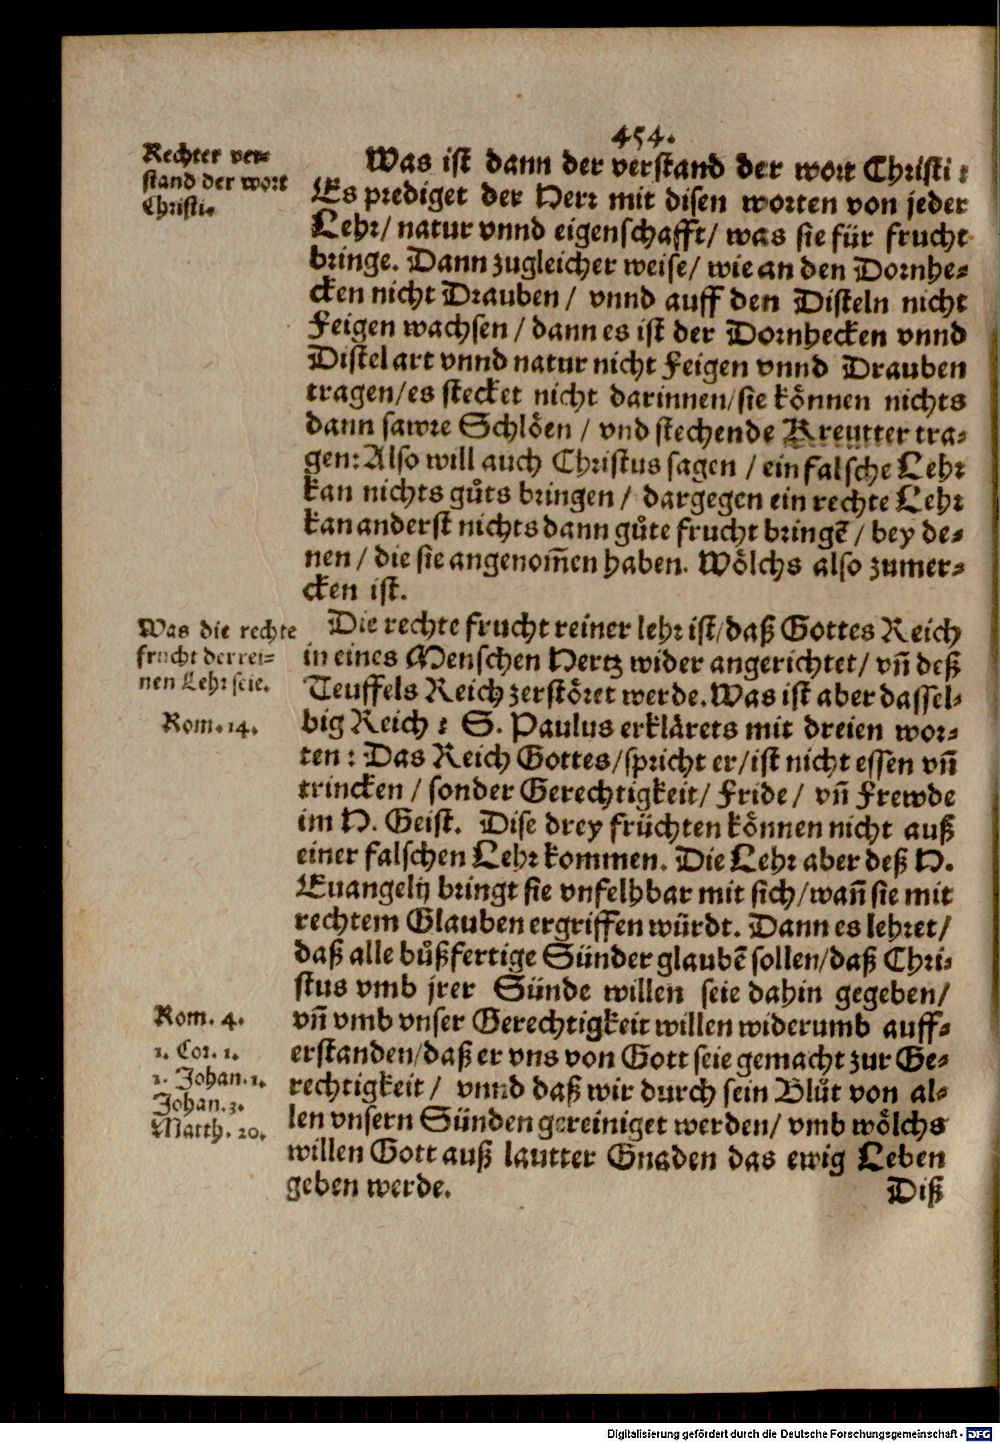 454.
Rechter ver-
stand der wort
Christi.
Was ist dann der verstand der wort Christi?
Es prediget der Herr mit disen worten von jeder
Lehr/ natur vnnd eigenschafft/ was sie für frucht
bringe. Dann zugleicher weise/ wie an den Dornhe-
cken nicht Drauben/ vnnd auff den Disteln nicht
Feigen wachsen/ dann es ist der Dornhecken vnnd
Distel art vnnd natur nicht Feigen vnnd Drauben
tragen/ es stecket nicht darinnen/ sie koͤnnen nichts
dann sawre Schloͤen/ vnd stechende Kreutter tra-
gen: Also will auch Christus sagen/ ein falsche Lehr
kan nichts guͦts bringen/ dargegen ein rechte Lehr
kan anderst nichts dann guͦte frucht bringē/ bey de-
nen/ die sie angenom̄en haben. Woͤlchs also zumer-
cken ist.
Was die rechte
frucht der rei-
nen Lehr seie.
Die rechte frucht reiner lehr ist/ daß Gottes Reich
in eines Menschen Hertz wider angerichtet/ vn̄ deß
Teuffels Reich zerstoͤret werde. Was ist aber dassel-
Rom. 14.
big Reich? S. Paulus erklaͤrets mit dreien wor-
ten: Das Reich Gottes/ spricht er/ ist nicht essen vn̄
trincken/ sonder Gerechtigkeit/ Fride/ vn̄ Frewde
im H. Geist. Dise drey früchten koͤnnen nicht auß
einer falschen Lehr kommen. Die Lehr aber deß H.
Euangelij bringt sie vnfelhbar mit sich/ wan̄ sie mit
rechtem Glauben ergriffen würdt. Dann es lehret/
daß alle buͦßfertige Sünder glaubē sollen/ daß Chri-
stus vmb jrer Sünde willen seie dahin gegeben/
Rom. 4.
1. Cor. 1.
1. Johan. 1.
Johan. 3.
Matth. 20.
vn̄ vmb vnser Gerechtigkeit willen widerumb auff-
erstanden/ daß er vns von Gott seie gemacht zur Ge-
rechtigkeit/ vnnd daß wir durch sein Bluͦt von al-
len vnsern Sünden gereiniget werden/ vmb woͤlchs
willen Gott auß lautter Gnaden das ewig Leben
geben werde.
Diß
Digitalisierung gefördert durch die Deutsche Forschungsgemeinschaft - DFG